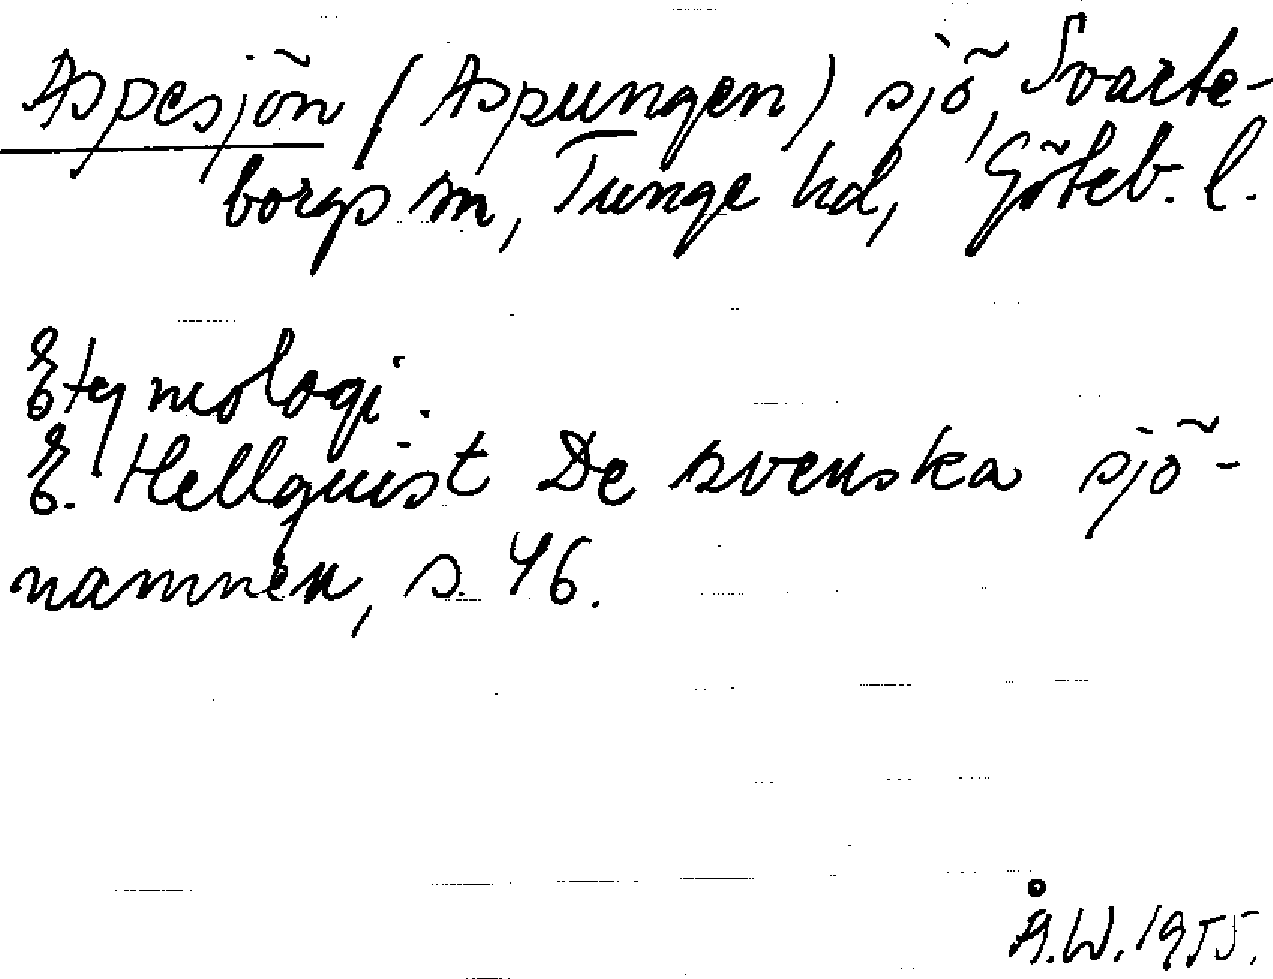 Aspesjön (Aspungen) sjö, Svarte-
borgs sn, Tunge hd, Göteb. l.
Etymologi.
E. Hellquist De svenska sjö-
namnen, s. 46.
Å.W. 1955.